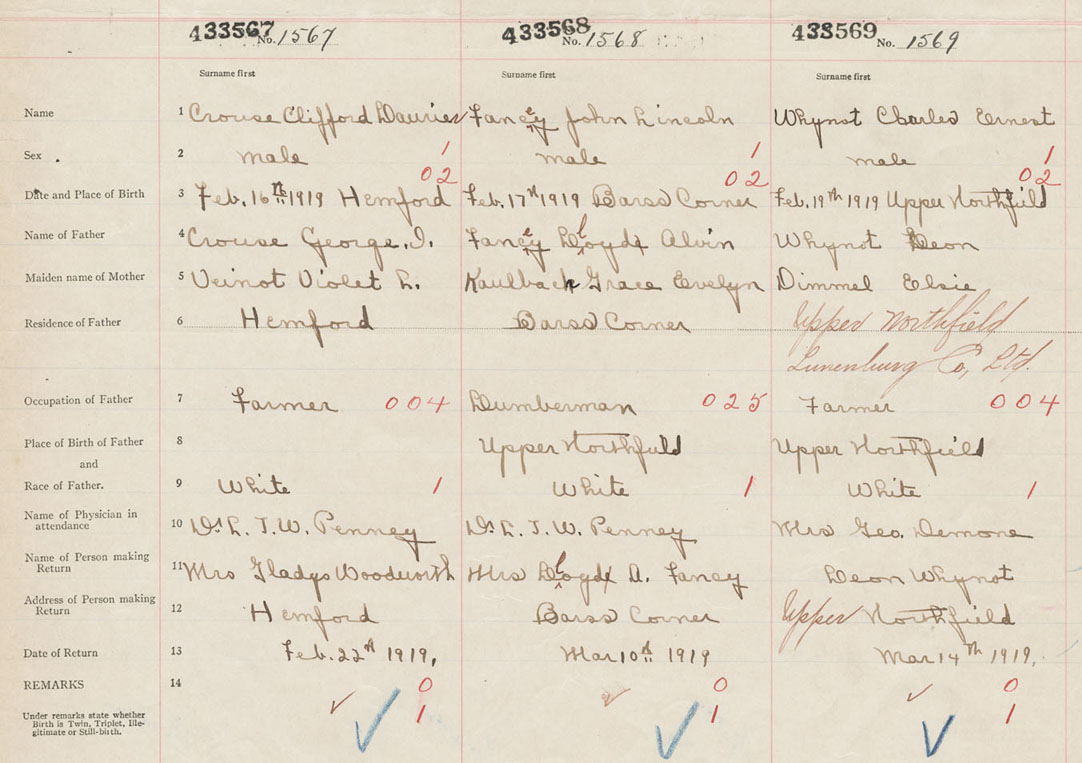 433567 No. 1567 433568 No. 1568 433569 No. 1569
Surname first Surname first Surname first
Name 1 Crouse Clifford Fancey John Lincoln Whynot Charles Ernest
Sex 2 male 1 male 1 male 1
02 02 02
Date and Place of Birth 3 Feb. 16th 1919 Hemford Feb. 17th 1919 Barss Corner Feb. 19th 1919 Upper Northfield
Name of Father 4 Crouse George. I. Fancey Lloyd Alvin Whynot Leon
Maiden name of Mother 5 Veinot Violet L. Kaulback Grace Evelyn Dimmel Elsie
Residence of Father 6 Hemford Barss Corner Upper Northfield
Lunenburg Co, Ltd.
Occupation of Father 7 Farmer 004 Lumberman 025 Farmer 004
Place of Birth of Father 8 Upper Northfield Upper Northfield
and
Race of Father. 9 White 1 White 1 White 1
Name of Physician in
attendance 10 Dr L. J. W. Penney Dr L. J. W. Penney Mrs Geo. Demone
Name of Person making
Return 11 Mrs Gladys Woodworth Mrs Lloyd A. Fancy Leon Whynot
Address of Person making
Return 12 Hemford Barss Corner Upper Northfield
Date of Return 13 Feb. 22nd 1919, Mar 10th 1919 Mar 14th 1919,
REMARKS 14 0 0 0
Under remarks state whether
Birth is Twin, Triplet, Ille-
gitimate or Still-birth. 1 1 1